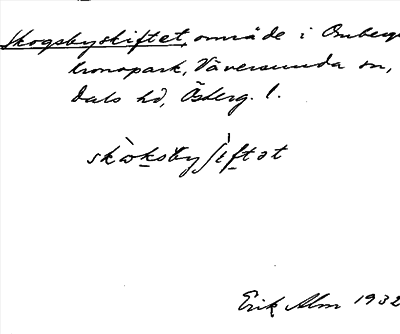 Skogsbyskiftet, område i Omberge
kronopark, Väversunda sn,
Dals hd, Österg. l.
skòksbyʃìftət
Erik Alm 1932